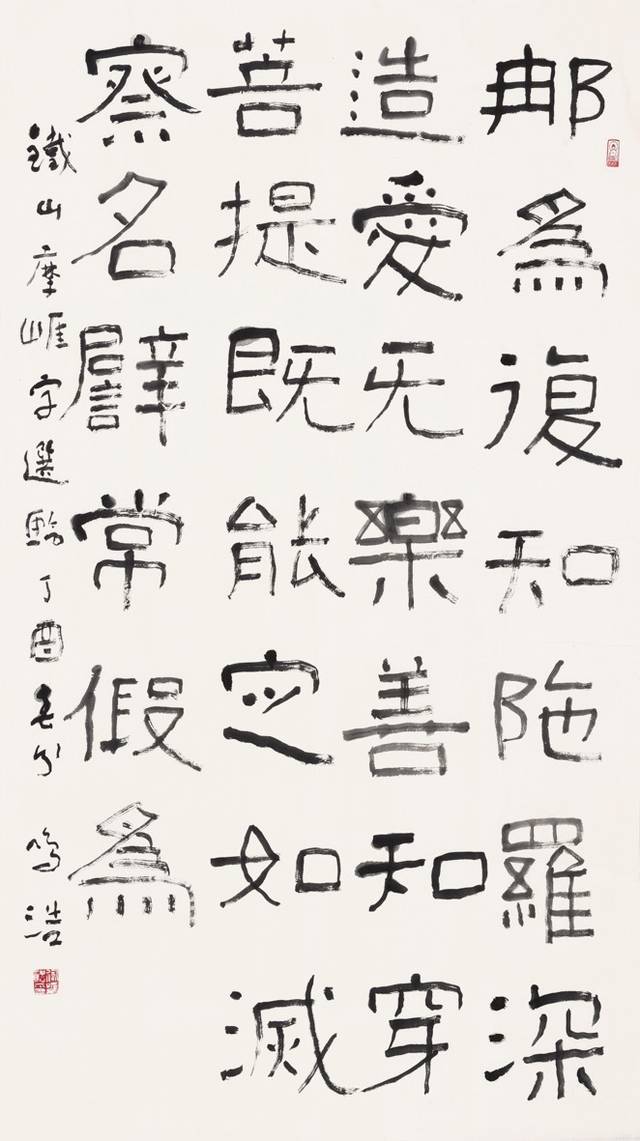 那爲復知陁羅深
造愛无樂善知穿
菩提既能定如滅
察名譬常假爲
鐵山摩崖字選臨丁酉春分鳴浩